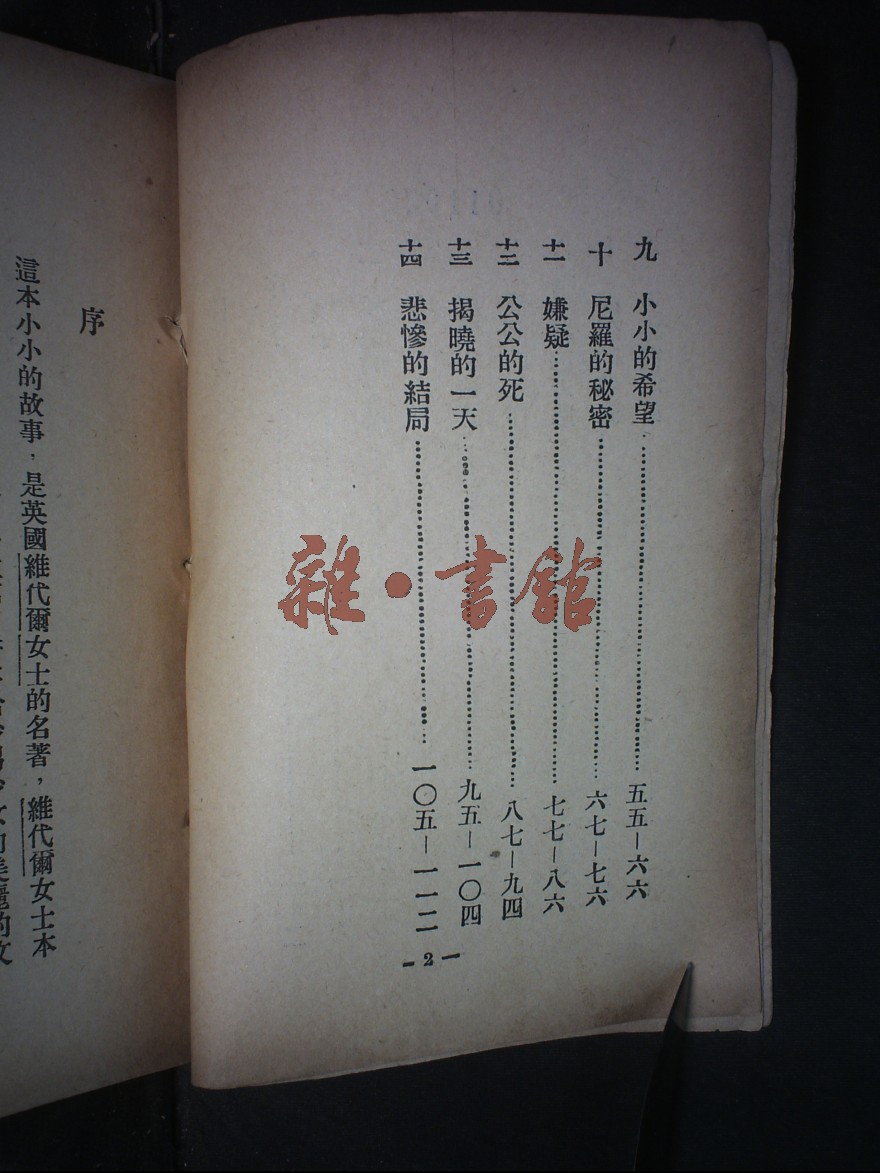 九 小小的希望……五五—六六
十 尼羅的秘密……六七—七六
十一 嫌疑……七七—八六
十二 公公的死……八七—九四
十三 揭曉的一天……九五—一〇四
十四 悲慘的結局……一〇五—一一二
—2—
序
這本小小的故事，是英國維代爾女士的名著，維代爾女士本
雜·書館